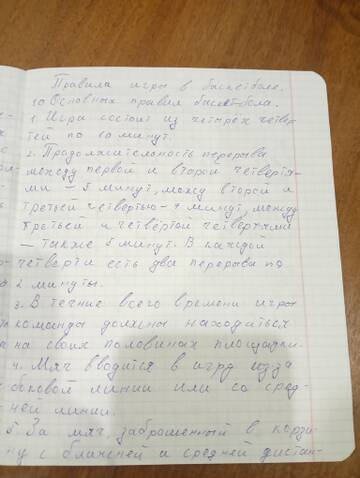 Правила игры в баскетболе.
10 Основных правил баскетбола.
1. Игра состоит из четырёх четвер-
тей по 10 минут.
2. Продолжительность перерыва
между первой и второй четвертя-
ми – 5 минут, между второй и
третьей четвертью - 7 минут, между
третьей и четвёртой четвертями
– также 5 минут. В каждой
четверти есть два перерыва по
2 минуты.
3. В течние всего времени игры
команды должны находиться
на своих половинах площадки.
4. Мяч вводится в игру из-за
боковой линии или со сред-
ней линии.
5. За мяч, заброшенный в корзи-
ну с ближней и средней дистан-